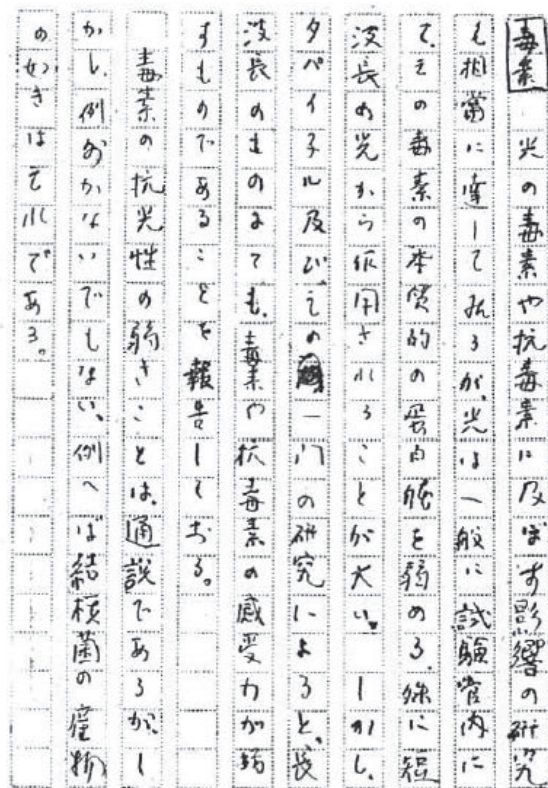 毒素 光の毒素や抗毒素に及ぼす影響の研究
も相当に達して居るが、光は一般に試験管内に
て、その毒素の本質的の蛋白態を弱める、殊に短
波長の光から作用されることが大い。しかし、
タパイ子ル及びその一門の研究によると、長
波長のものまでも、毒素や抗毒素の感受力が弱
すものであることを報告しておる。
毒素の抗光性の弱きことは、通説であるが、し
かし、例外がないでもない、例へば結核菌の産物
の如きはそれである。